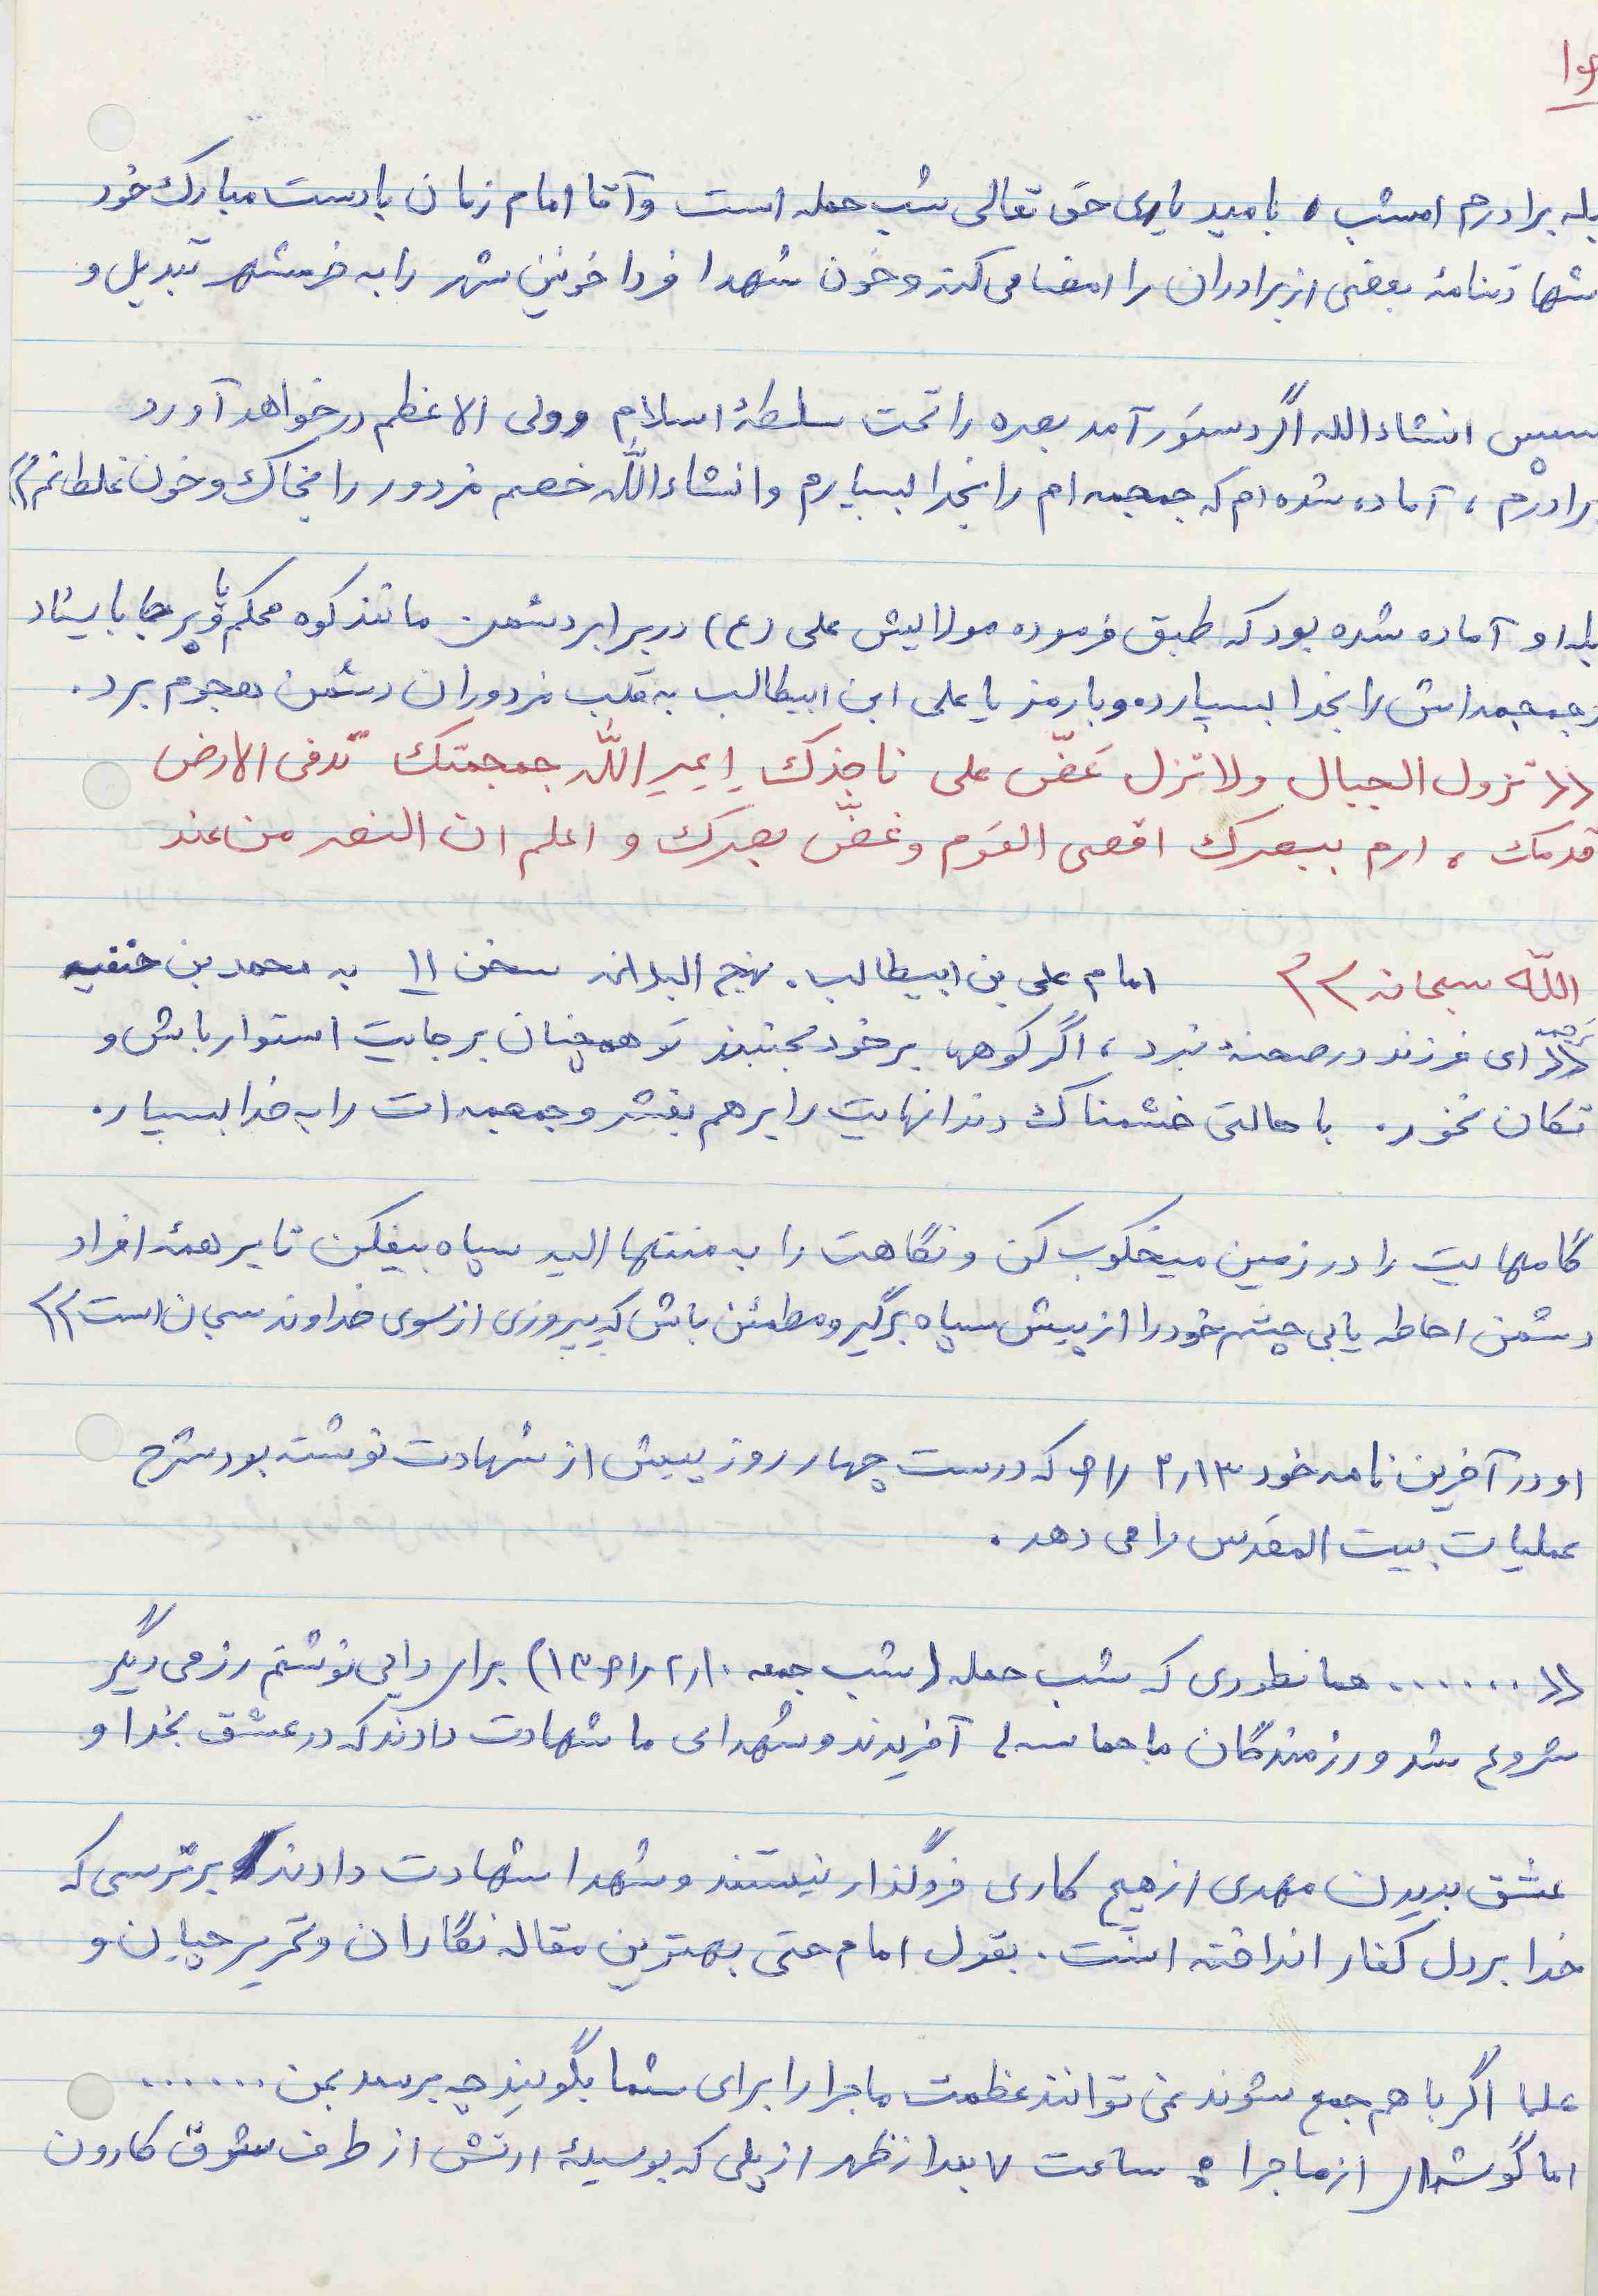 ۱۶
بله برادرم امشب، بامید یاری حق تعالی شب حمله است و آقا امام زمان با دست مبارک خود
شهادتنامهٔ بعضی از برادران را امضا می کند و خون شهدا فردا خونین شهر را به خرمشهر تبدیل و
سپس انشاءالله اگر دستور آمد بصره را تحت سلطهٔ اسلام و ولی الاعظم در خواهد آورد
برادرم، آماده شده ام که جمجمه ام را بخدا بسپارم و انشاءالله خصم مزدور را بخاک و خون غلطانم»
بله او آماده شده بود که طبق فرموده مولایش علی (ع) در برابر دشمن مانند کوه محکم و پا برجا بایستاد
و جمجمه اش را بخدا بسپارده و با رمز یا علی ابن ابیطالب به قلب مزدوران دشمن هجوم برد.
«تزول الجبال ولا تزل عَضّ علی ناجذک اِعِیرِ اللّه جمجمتک تدفی الارض
قدمک، ارم ببصرک اقصی القوم و غضّ بصرک و اعلم ان النصر من عند
اللّه سبحانه» امام علی بن ابیطالب. نهج البلاغه سخن ۱۱ به محمد بن حنفیه
ترجمه «ای فرزند در صحنهٔ نبرد، اگر کوهها بر خود بجنبند تو همچنان بر جایت استوار باش و
تکان نخور. با حالتی خشمناک دندانهایت را برهم بفشر و جمجمه ات را به خدا بسپار.
گامهایت را در زمین میخکوب کن و نگاهت را به منتها الیه سپاه بیفکن تا بر همهٔ افراد
دشمن احاطه یابی چشم خود را از پیش سپاه برگیر و مطمئن باش که پیروزی از سوی خداوند سبحان است»
او در آخرین نامه خود ۶۱/۲/۱۳ که درست چهار روز پیش از شهادت نوشته بود شرح
عملیات بیت المقدس را می دهد.
«....... همانطوری که شب حمله (شب جمعه ۱۳۶۱/۲/۱۰) برای دایی نوشتم رزمی دیگر
شروع شد و رزمندگان ما حماسه ها آفریدند و شهدای ما شهادت دادند که در عشق بخدا و
عشق بدیدن مهدی از هیچ کاری فروگذار نیستند و شهدا شهادت دادند بر ترسی که
خدا بر دل کفار انداخته است. بقول امام حتی بهترین مقاله نگاران و تحریرچیان و
علما اگر با هم جمع شوند نمی توانند عظمت ماجرا را برای شما بگویند چه برسد بمن ......
اما گوشه ای از ماجرا: ساعت ۷ بعد از ظهر از پلی که بوسیلهٔ ارتش از طرف شرق کارون